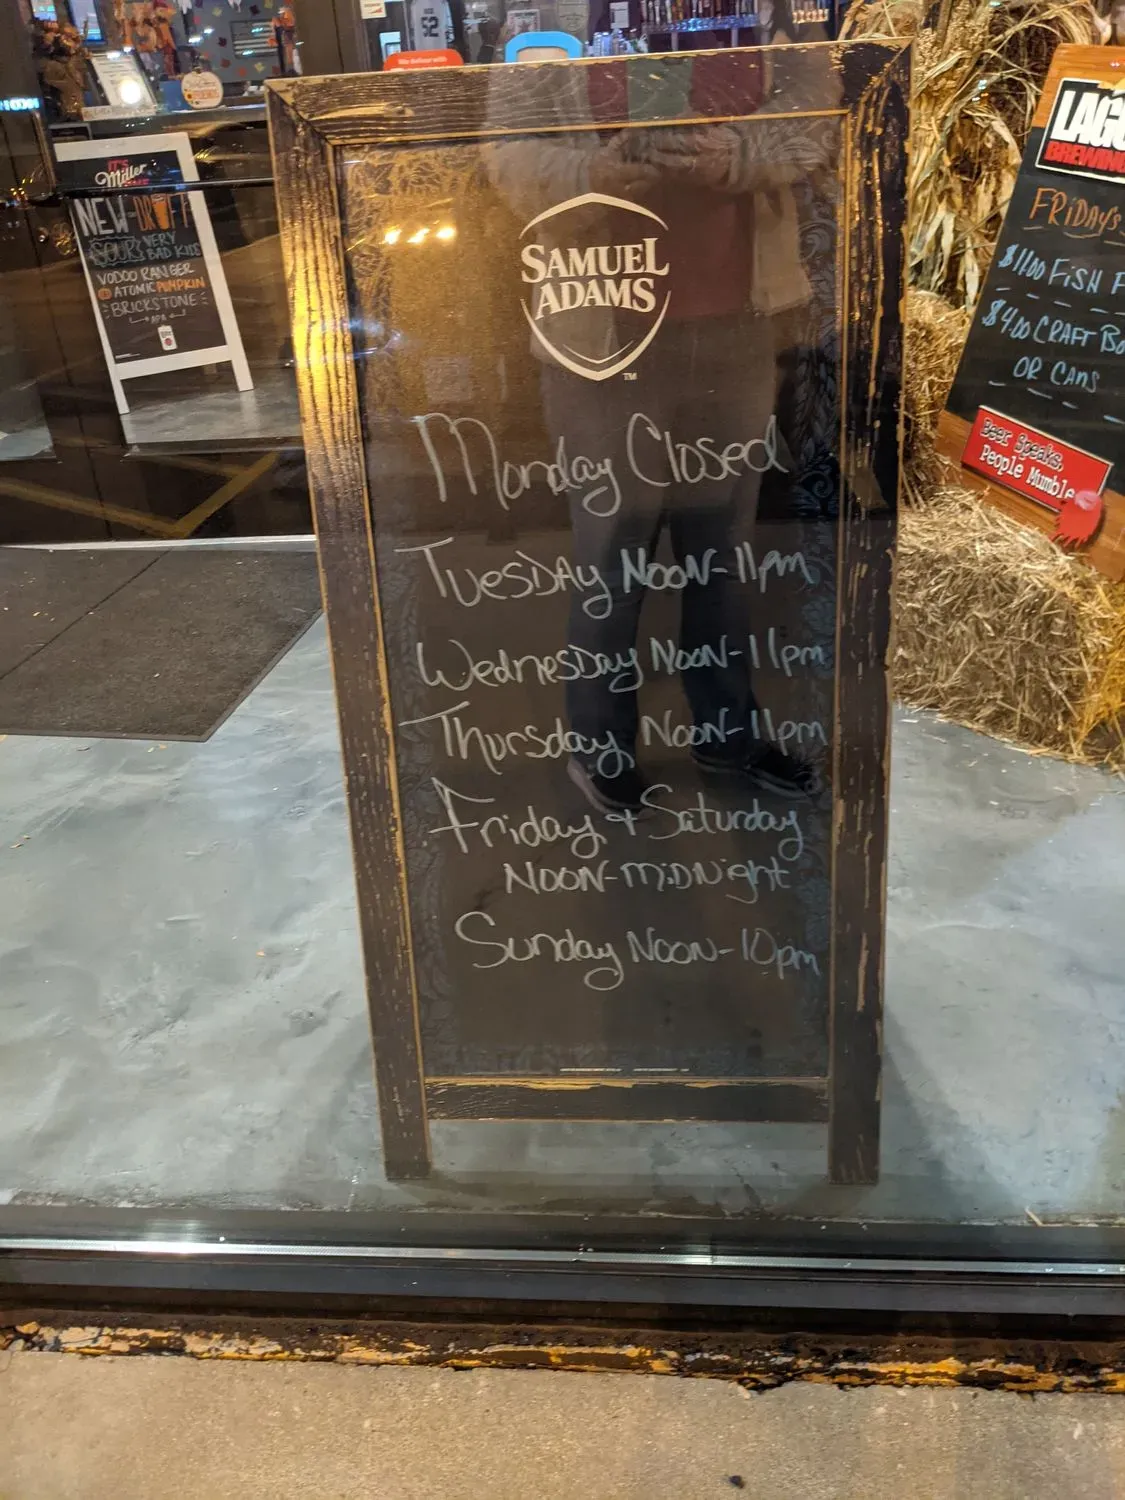 SAMUEL
ADAMS
TM
Monday Closed
Tuesday Noon-11pm
Wednesday Noon-11pm
Thursday Noon-11pm
Friday + Saturday
Noon-midnight
Sunday Noon-10pm
IT'S
Miller
NEW DRAFT
SOUR VERY
BAD KIDS
VODOO RANGER
ATOMIC PUMPKIN
BRICKSTONE
APA
52
We deliver with
LAGU
BREWING
FRIDAY'S
$11.00 FISH F
$4.00 CRAFT Bo
OR CANS
Beer Speaks.
People Mumble